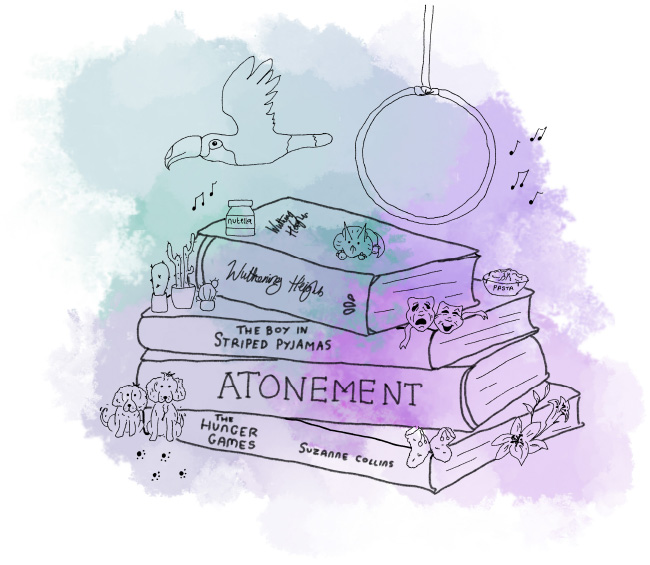 nutella
Wuthering
Heights
Wuthering Heights
PASTA
THE BOY IN
STRIPED PYJAMAS
ATONEMENT
THE
HUNGER
GAMES
SUZANNE COLLINS